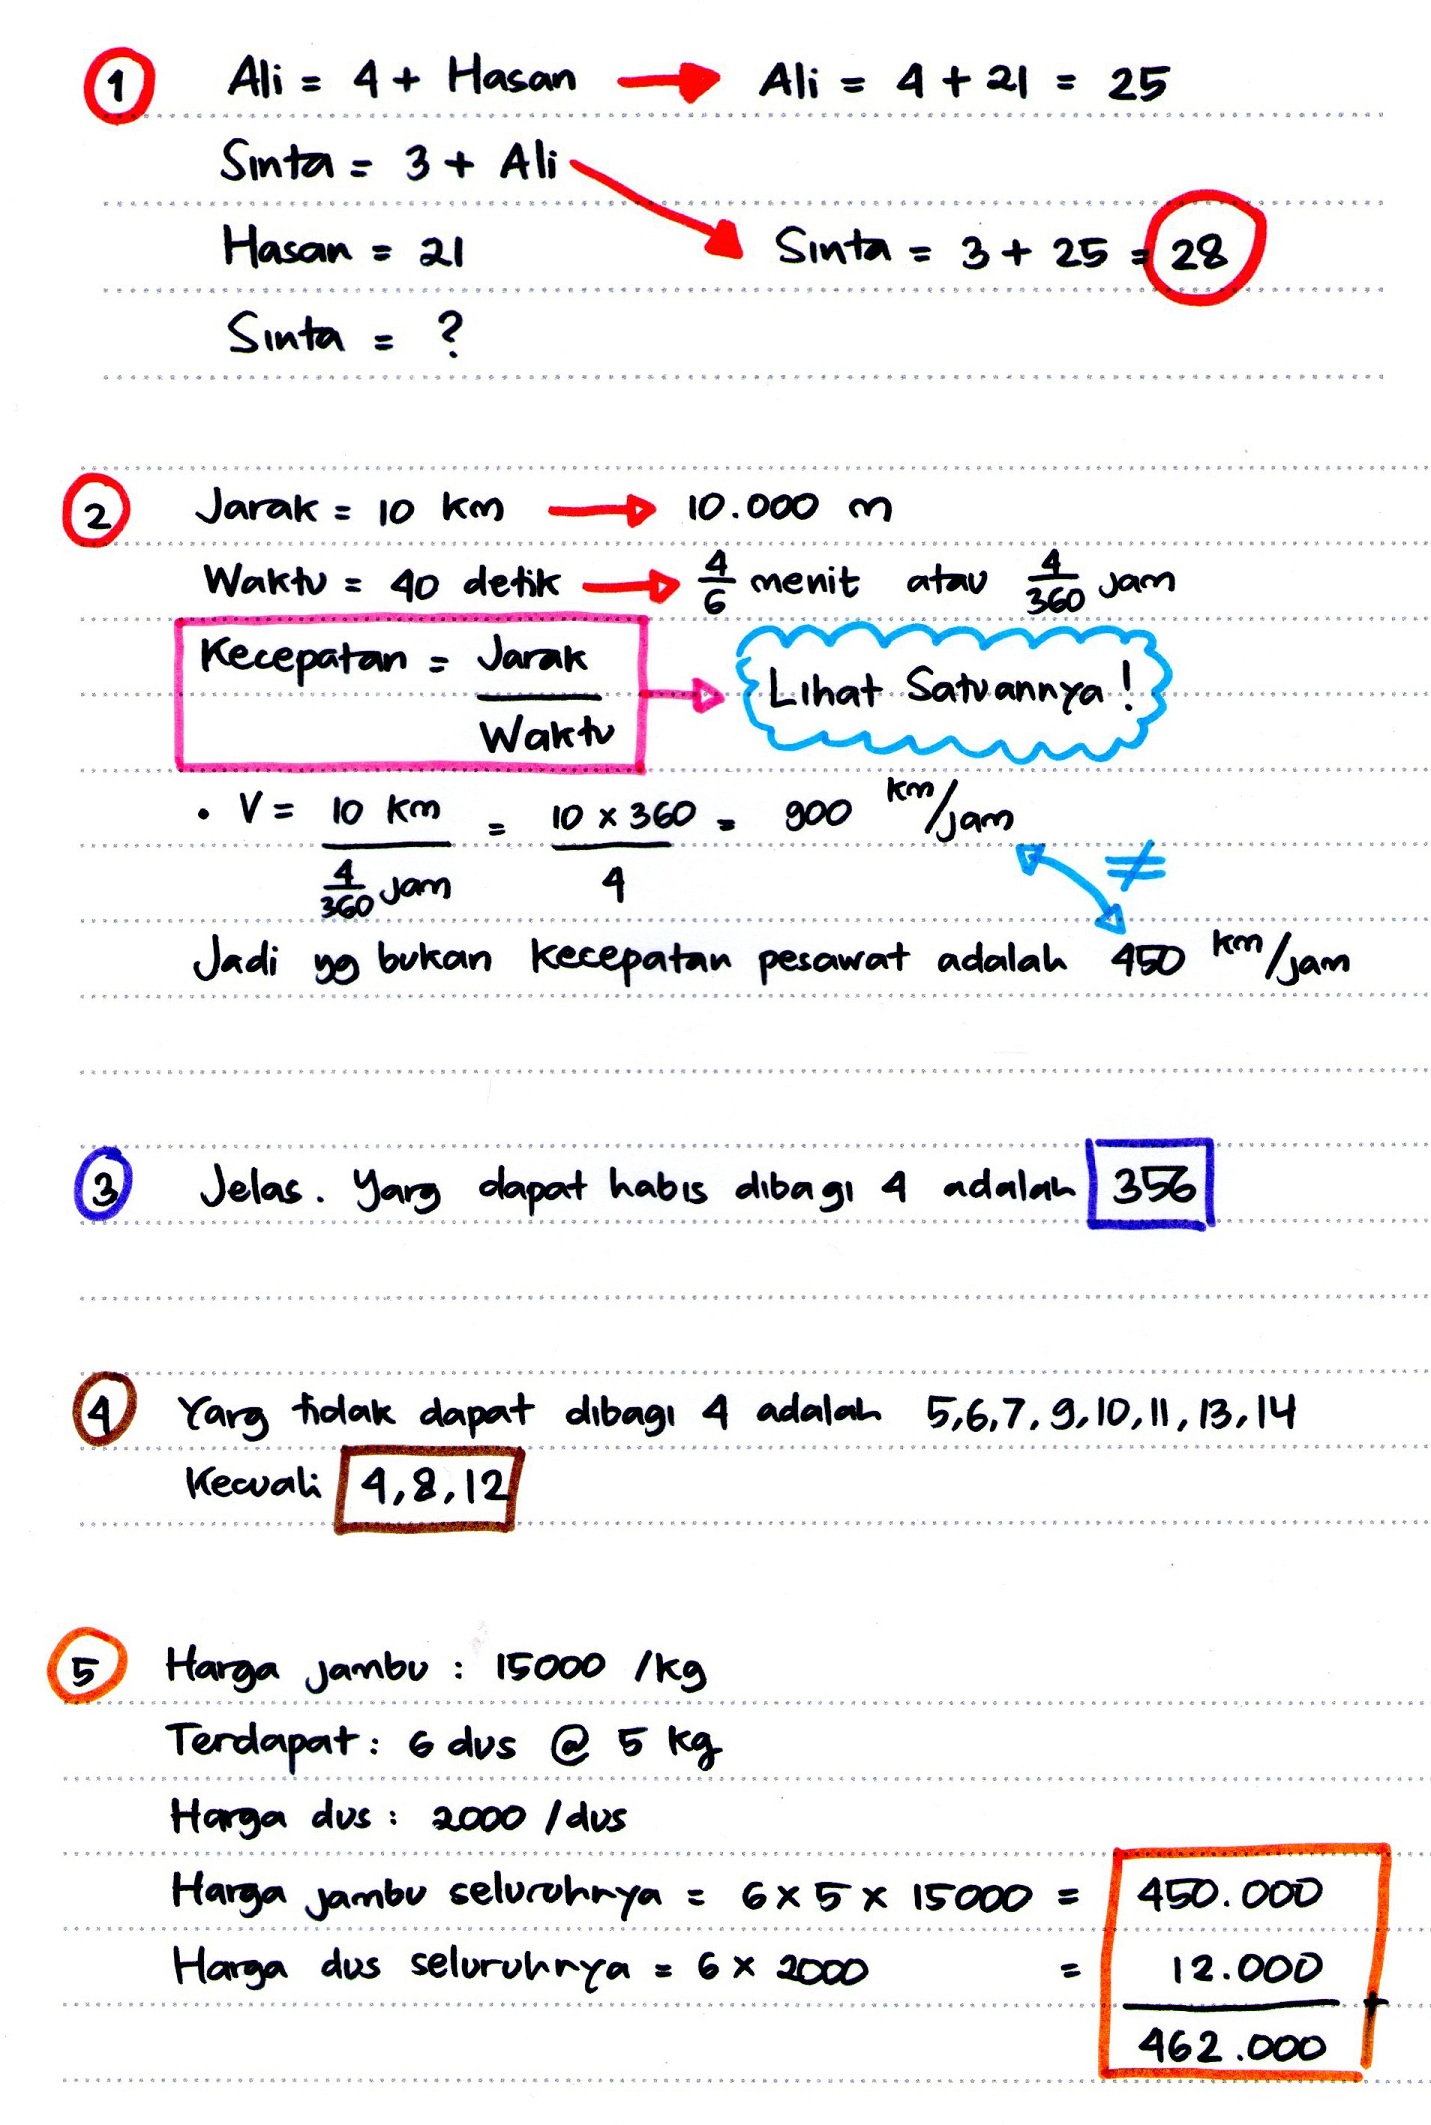 1 Ali = 4 + Hasan → Ali = 4 + 21 = 25
Sinta = 3 + Ali
Hasan = 21 Sinta = 3 + 25 = 28
Sinta = ?
2 Jarak = 10 km → 10.000 m
Waktu = 40 detik → 4/6 menit atau 4/360 jam
Kecepatan = Jarak / Waktu → Lihat Satuannya!
• V = 10 km / 4/360 jam = 10 x 360 / 4 = 900 km/jam
≠
Jadi yg bukan kecepatan pesawat adalah 450 km/jam
3 Jelas. Yang dapat habis dibagi 4 adalah 356
4 Yang tidak dapat dibagi 4 adalah 5,6,7,9,10,11,13,14
Kecuali 4,8,12
5 Harga jambu : 15000 /kg
Terdapat : 6 dus @ 5 kg
Harga dus : 2000 /dus
Harga jambu seluruhnya = 6 x 5 x 15000 = 450.000
Harga dus seluruhnya = 6 x 2000 = 12.000
+
462.000